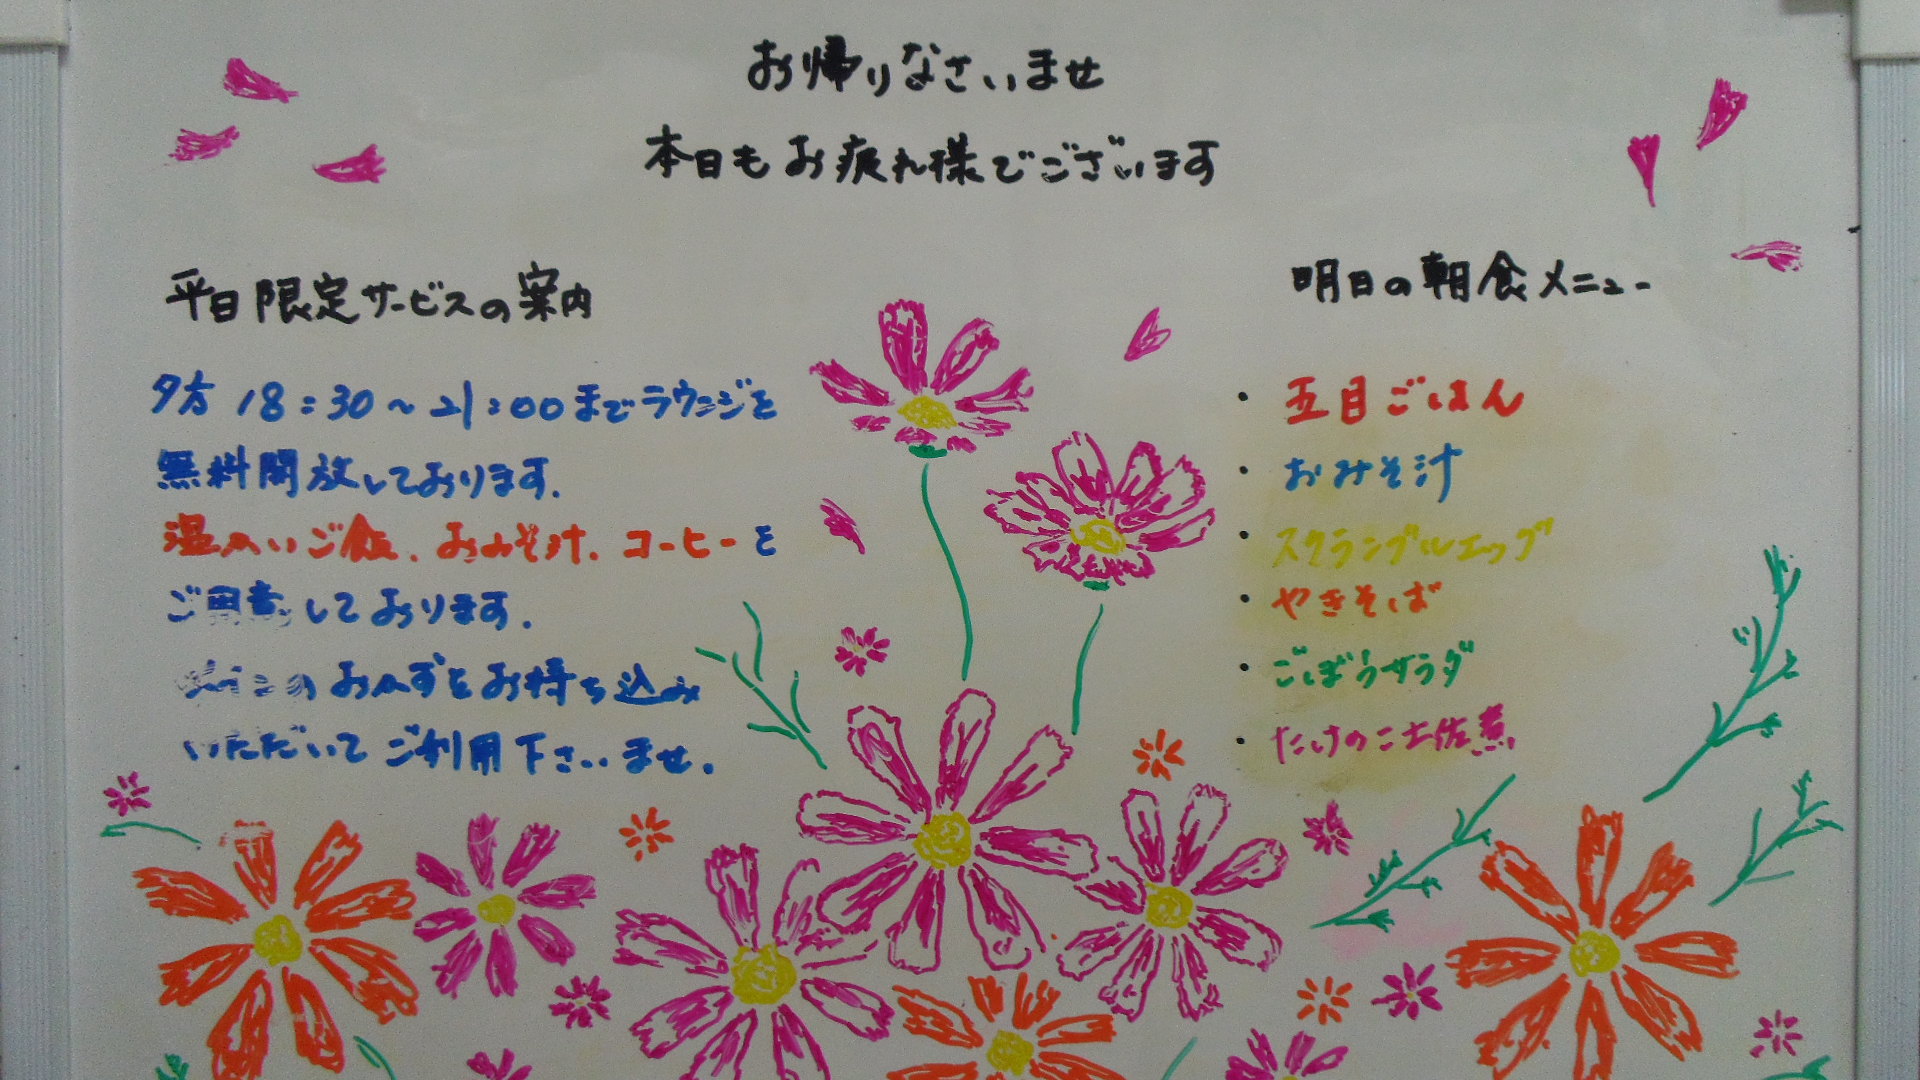 お帰りなさいませ
本日もお疲れ様でございます
平日限定サービスの案内
夕方 18:30~21:00までラウンジを
無料開放しております.
温かいご飯、おみそ汁、コーヒーを
ご用意しております.
のおかずをお持ち込み
いただいてご利用下さいませ.
明日の朝食メニュー
・五目ごはん
・おみそ汁
・スクランブルエッグ
・やきそば
・ごぼうサラダ
・たけのこ土佐煮